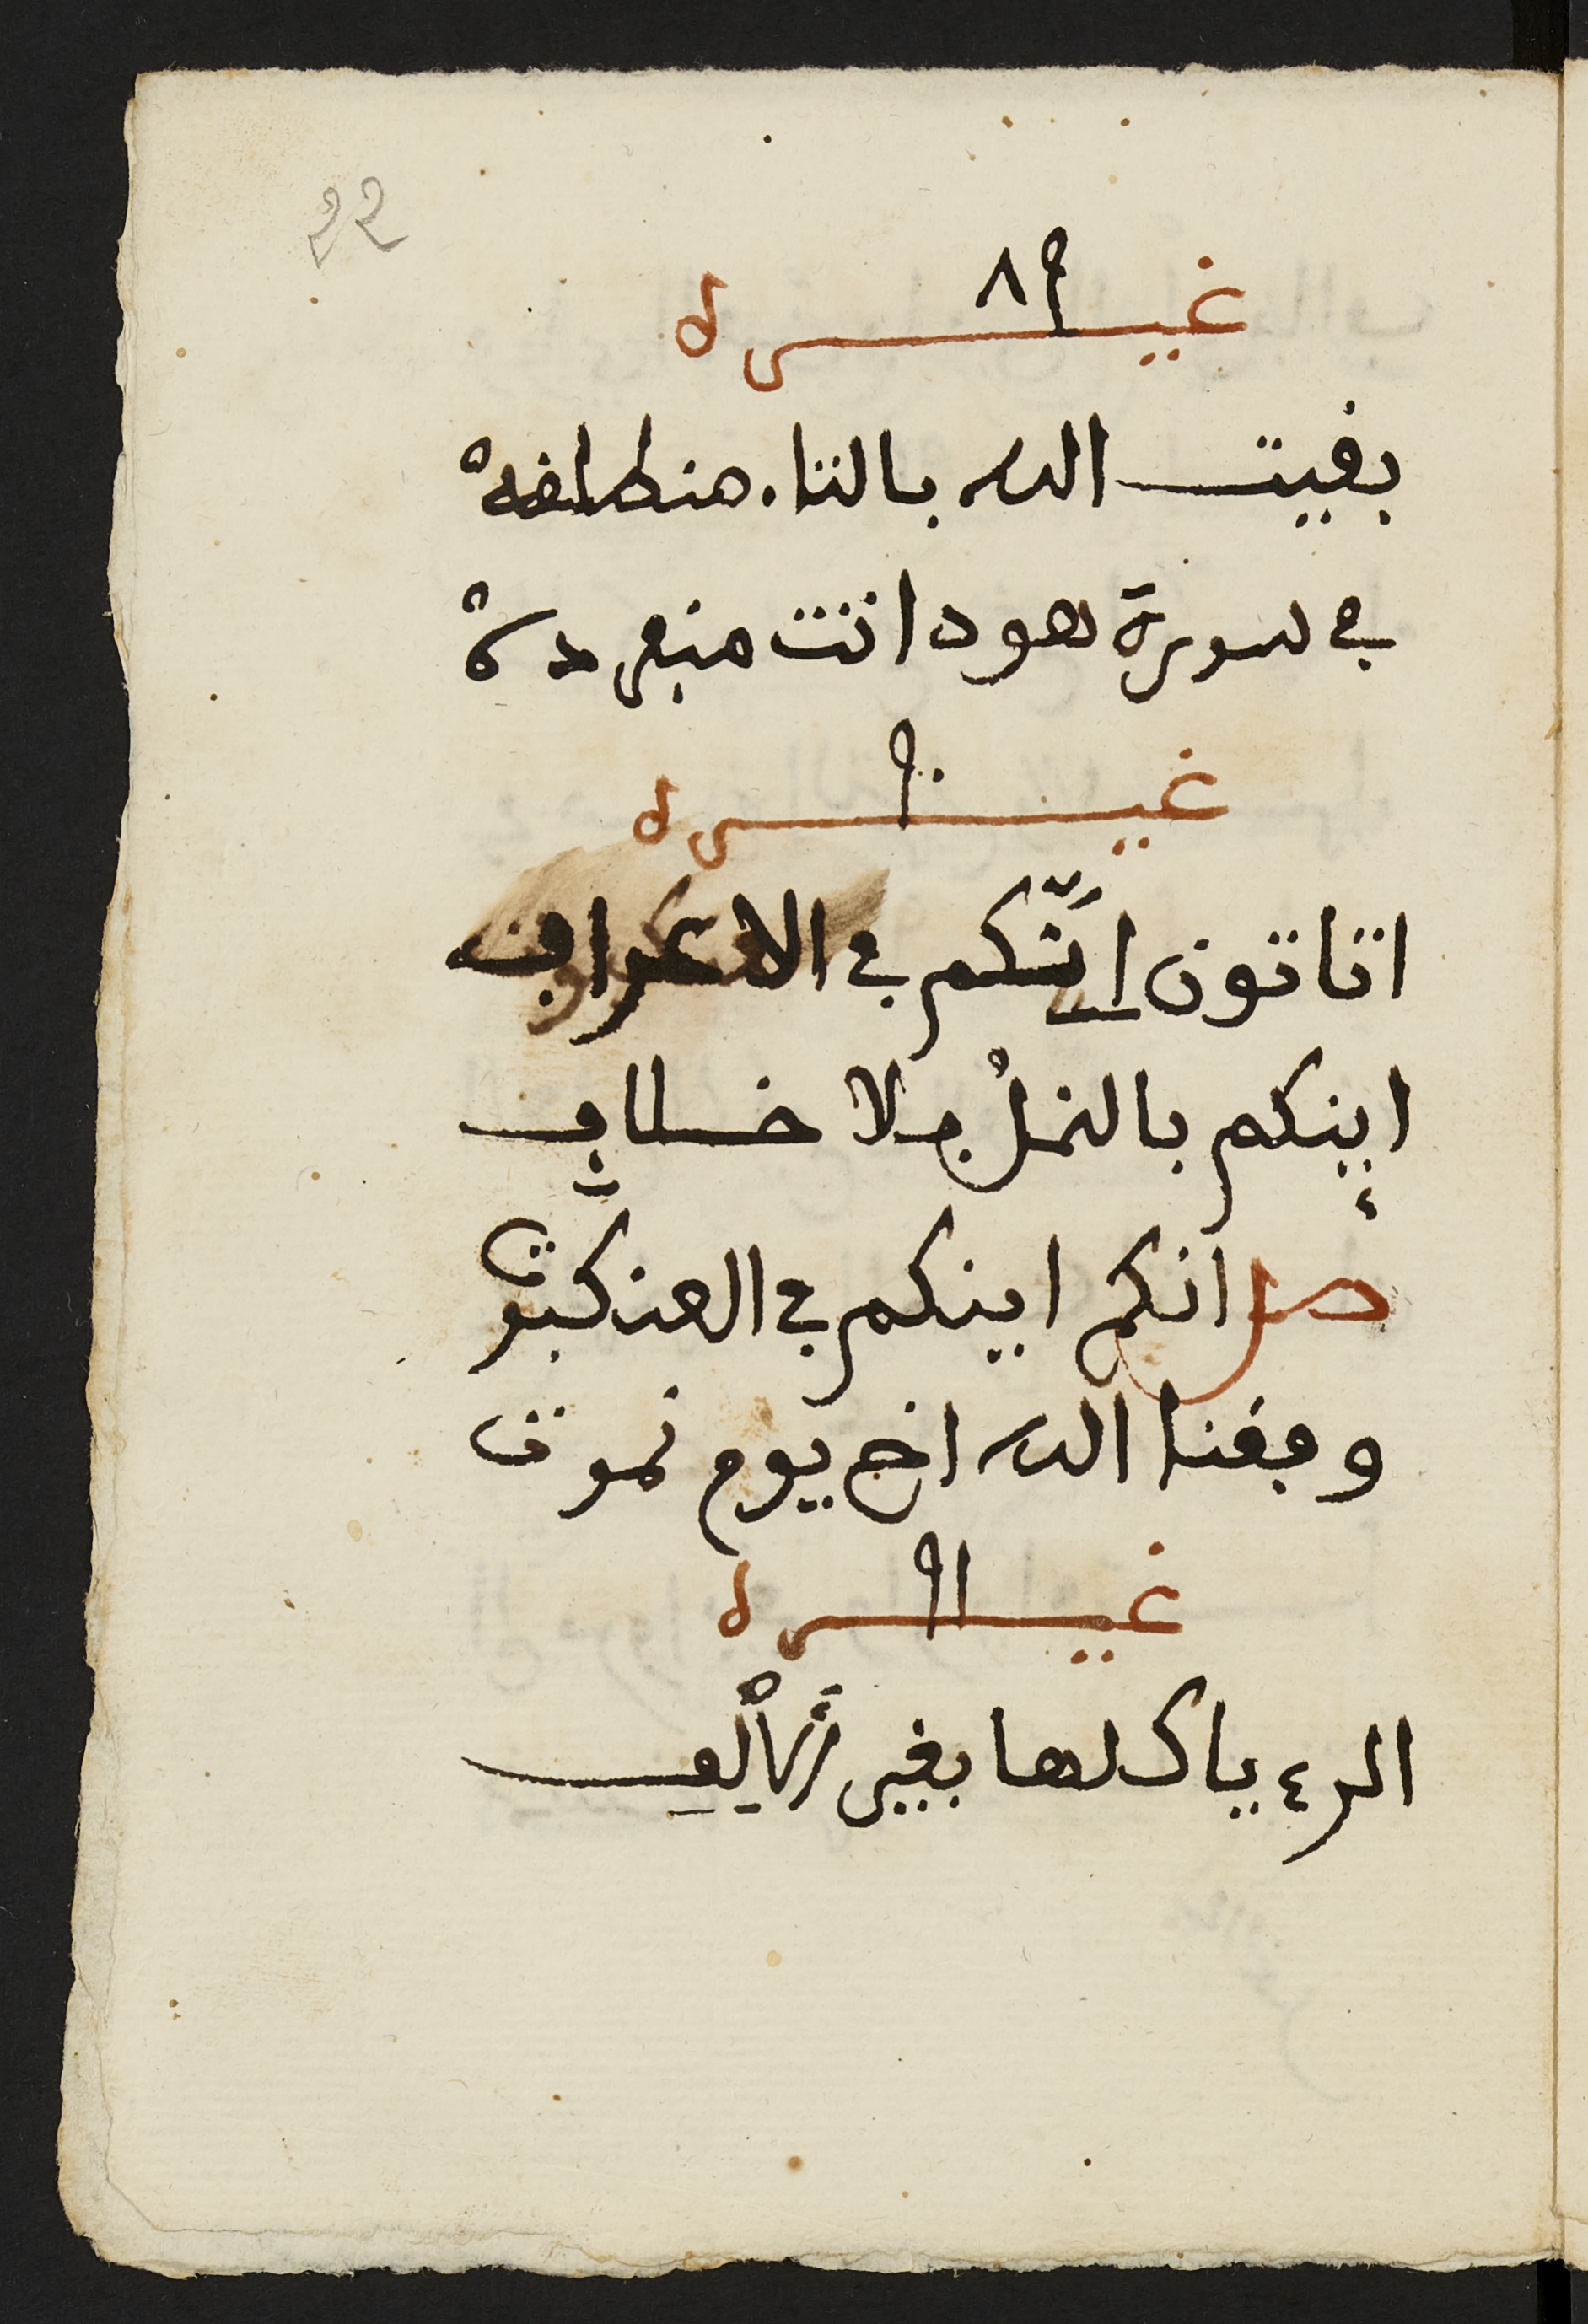 22
غيره ٨٩
بقيت الله بالتا. منطلقهْ
في سورة هود انت منفردهْ
غيره ٩٠
اتاتون انّكم في الاعراف
اينكم بالنملْ بلا خلاف
صل انكم اينكم في العنكبوت
وفقنا الله اخي يوم نموت
غيره ٩١
الرء ياكلها بغير ألف